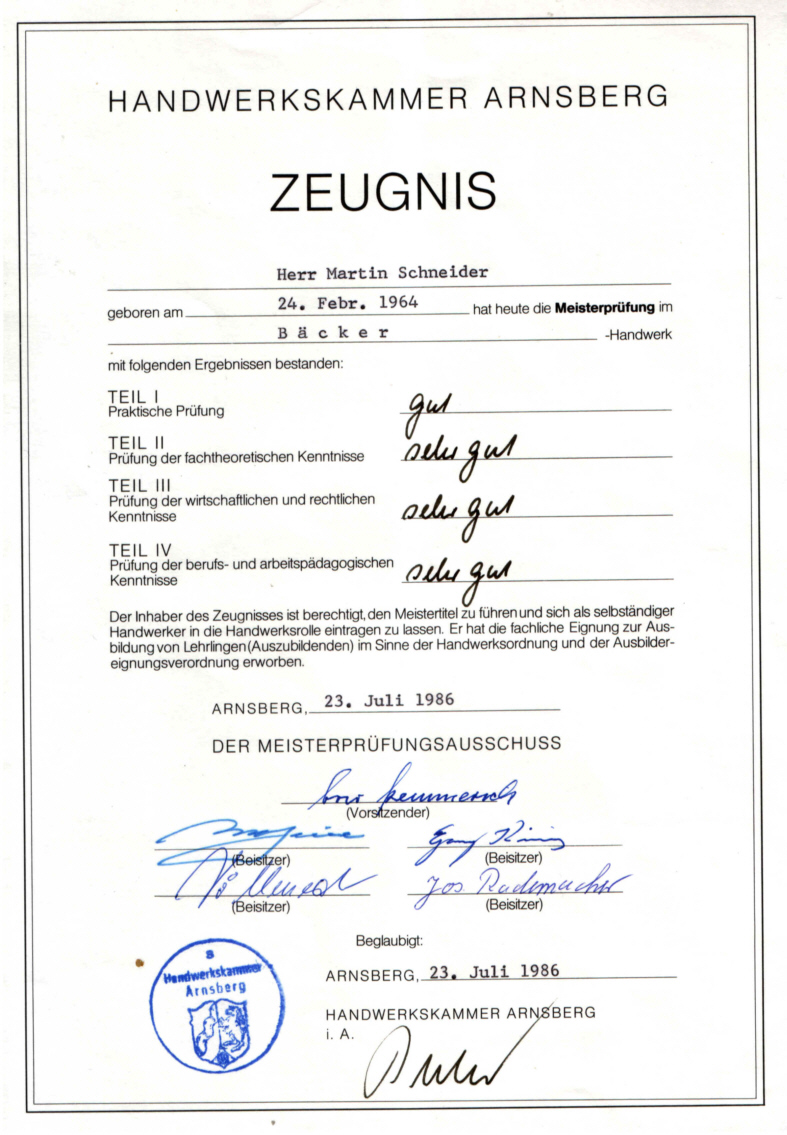 HANDWERKSKAMMER ARNSBERG
ZEUGNIS
Herr Martin Schneider
geboren am 24. Febr. 1964 hat heute die Meisterprüfung im
Bäcker -Handwerk
mit folgenden Ergebnissen bestanden:
TEIL I
Praktische Prüfung gut
TEIL II
Prüfung der fachtheoretischen Kenntnisse sehr gut
TEIL III
Prüfung der wirtschaftlichen und rechtlichen
Kenntnisse sehr gut
TEIL IV
Prüfung der berufs- und arbeitspädagogischen
Kenntnisse sehr gut
Der Inhaber des Zeugnisses ist berechtigt, den Meistertitel zu führen und sich als selbständiger
Handwerker in die Handwerksrolle eintragen zu lassen. Er hat die fachliche Eignung zur Aus-
bildung von Lehrlingen (Auszubildenden) im Sinne der Handwerksordnung und der Ausbilder-
eignungsverordnung erworben.
ARNSBERG, 23. Juli 1986
DER MEISTERPRÜFUNGSAUSSCHUSS
(Vorsitzender)
(Beisitzer) (Beisitzer)
Jos. Rademacher
(Beisitzer) (Beisitzer)
Beglaubigt:
8
Handwerkskammer
Arnsberg
ARNSBERG, 23. Juli 1986
HANDWERKSKAMMER ARNSBERG
i. A.